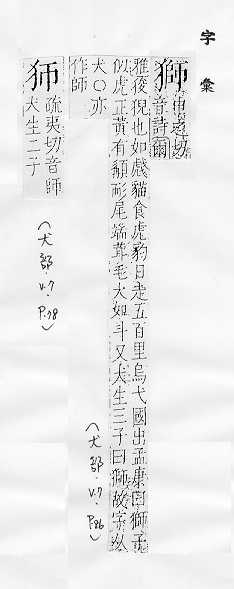 字彙
獅
申切
音詩爾
雅狻猊也如虦貓食虎豹日走五百里烏弋國出孟康曰獅子
似虎正黃有耏尾端茸毛大如斗又犬生三子曰獅故字从
犬○亦
作師
（犬部.V.7.P.86）
狮
疏夷切音師
犬生二子
（犬部.V.7.P.78）